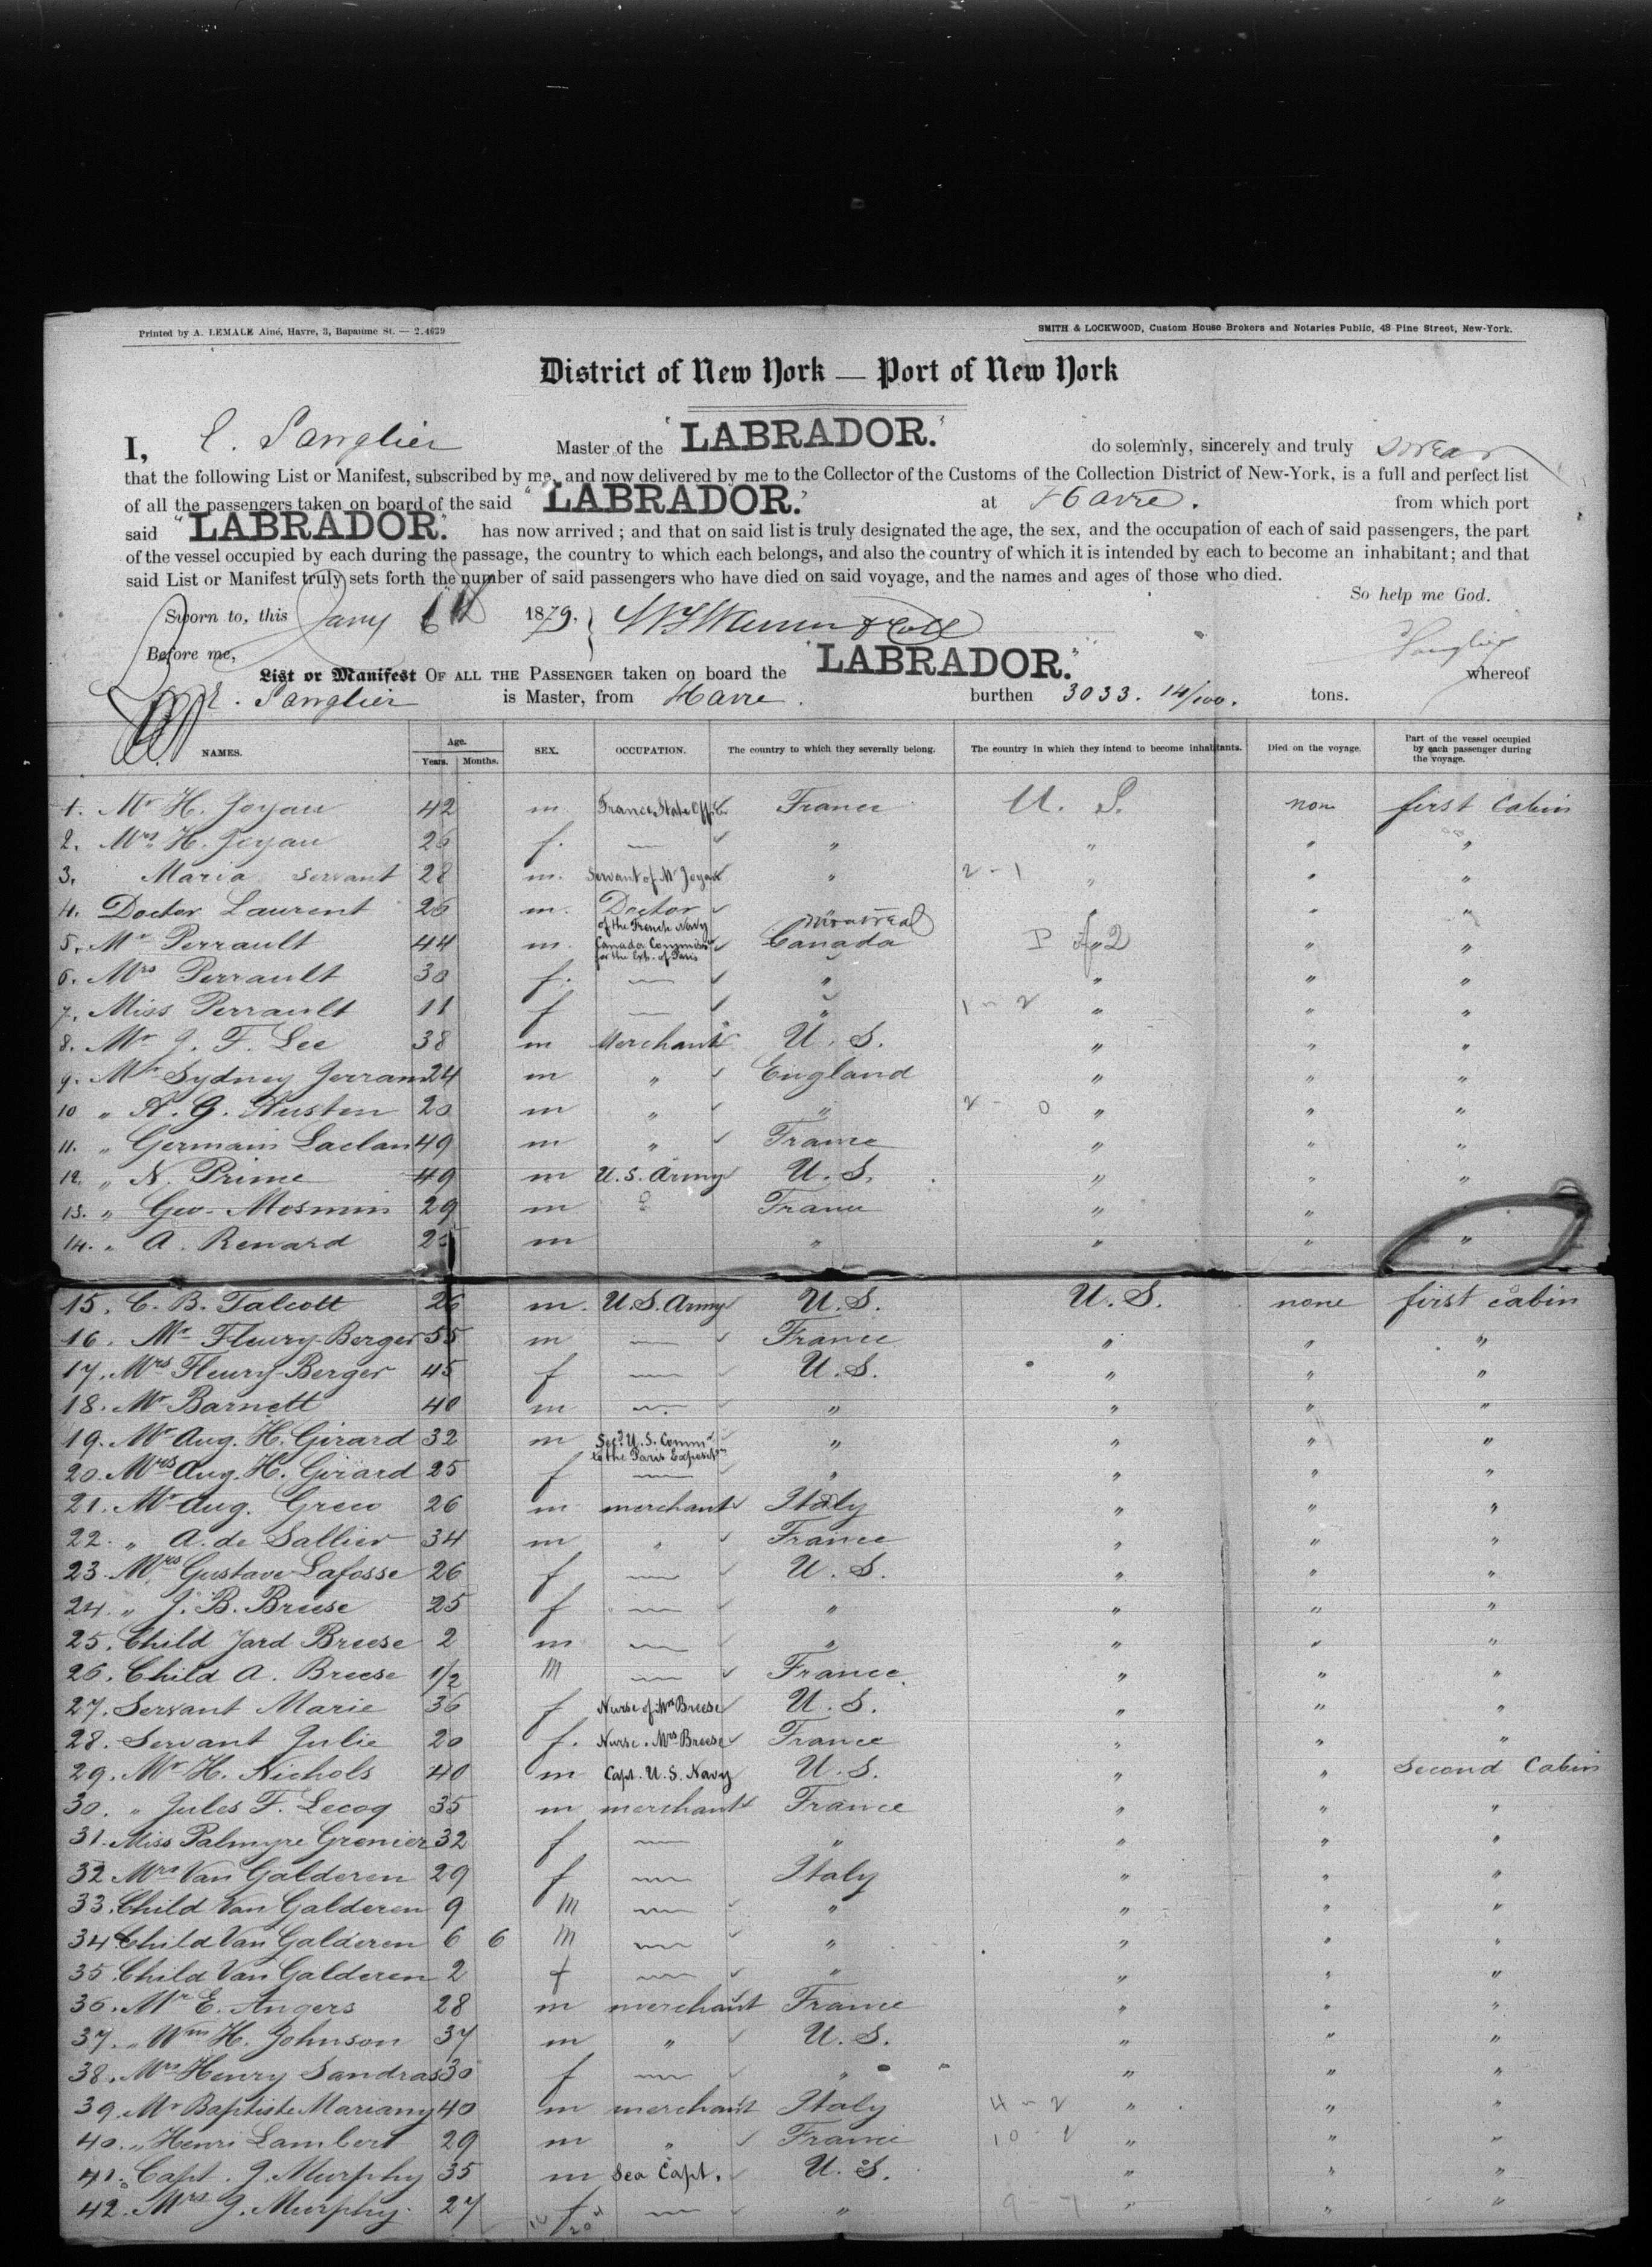 Printed by A. LEMALE Ainé, Havre, 3, Bapaume St. — 2.4629
SMITH & LOCKWOOD, Custom House Brokers and Notaries Public, 48 Pine Street, New-York.
District of New York — Port of New York
I, E. Sanglier Master of the "LABRADOR." do solemnly, sincerely and truly swear
that the following List or Manifest, subscribed by me, and now delivered by me to the Collector of the Customs of the Collection District of New-York, is a full and perfect list
of all the passengers taken on board of the said "LABRADOR." at Havre. from which port
said "LABRADOR." has now arrived; and that on said list is truly designated the age, the sex, and the occupation of each of said passengers, the part
of the vessel occupied by each during the passage, the country to which each belongs, and also the country of which it is intended by each to become an inhabitant; and that
said List or Manifest truly sets forth the number of said passengers who have died on said voyage, and the names and ages of those who died.
So help me God.
Sworn to, this Jany 6th 1879.
Before me, Sanglier
List or Manifest OF ALL THE PASSENGER taken on board the "LABRADOR." whereof
E. Sanglier is Master, from Havre. burthen 3033. 14/100. tons.
NAMES. Age. Years. Months. SEX. OCCUPATION. The country to which they severally belong. The country in which they intend to become inhabitants. Died on the voyage. Part of the vessel occupied by each passenger during the voyage.
1. Mr H. Joyau 42 m France State Off. France U. S. non first Cabin
2. Mrs H. Joyau 26 f. — " " " "
3. Maria servant 28 m. Servant of Mr Joyau " 2-1 " " "
4. Doctor Laurent 26 m. Doctor of the French Navy " " " "
5. Mr Perrault 44 m. Canada Commiss for the Exh. of Paris Montreal Canada " " "
6. Mrs Perrault 30 f. — " " " "
7. Miss Perrault 11 f — " 1-2 " " "
8. Mr J. F. Lee 38 m Merchant U. S. " " "
9. Mr Sydney Jerram 24 m " England " " "
10 " A. G. Austen 20 m " " 2-0 " " "
11. " Germain Laclan 49 m " France " " "
12. " N. Prime 49 m U.S. Army U. S. " " "
13. " Geo. Mosmin 29 m France " "
14. " A. Renard 25 m " " " "
15. C. B. Talcott 26 m. U.S. Army U.S. U.S. none first cabin
16. Mr Fleury-Berger 55 m — France " " "
17. Mrs Fleury-Berger 45 f — U.S. " " "
18. Mr Barnett 40 m — " " " "
19. Mr Aug. H. Girard 32 m Secy U.S. Commn to the Paris Expositn " " " "
20. Mrs Aug. H. Girard 25 f — " " " "
21. Mr Aug. Greco 26 m merchant Italy " " "
22. " A. de Sallier 34 m " France " " "
23. Mrs Gustave Lafosse 26 f — U.S. " " "
24. " J. B. Breese 25 f — " " " "
25. Child Jard Breese 2 m — " " " "
26. Child A. Breese 1/2 m — France " " "
27. Servant Marie 36 f Nurse of Mrs Breese U.S. " " "
28. Servant Julie 20 f. Nurse. Mrs Breese France " " "
29. Mr H. Nichols 40 m Capt. U.S. Navy U.S. " " Second Cabin
30. " Jules F. Lecoq 35 m merchant France " " "
31. Miss Palmyre Grenier 32 f — " " " "
32 Mrs Van Galderen 29 f — Italy " " "
33. Child Van Galderen 9 m — " " " "
34 Child Van Galderen 6 6 m — " " " "
35. Child Van Galderen 2 f — " " " "
36. Mr E. Angers 28 m merchant France " " "
37. " Wm H. Johnson 37 m " U.S. " " "
38. Mrs Henry Sandras 30 f — " " " "
39. Mr Baptiste Mariany 40 m merchant Italy 4-2 " " "
40. " Henri Lambert 29 m " France " " "
41. Capt. J. Murphy 35 m Sea Capt. U.S. " " "
42. Mrs J. Murphy. 27 f — " 9 7 " " "